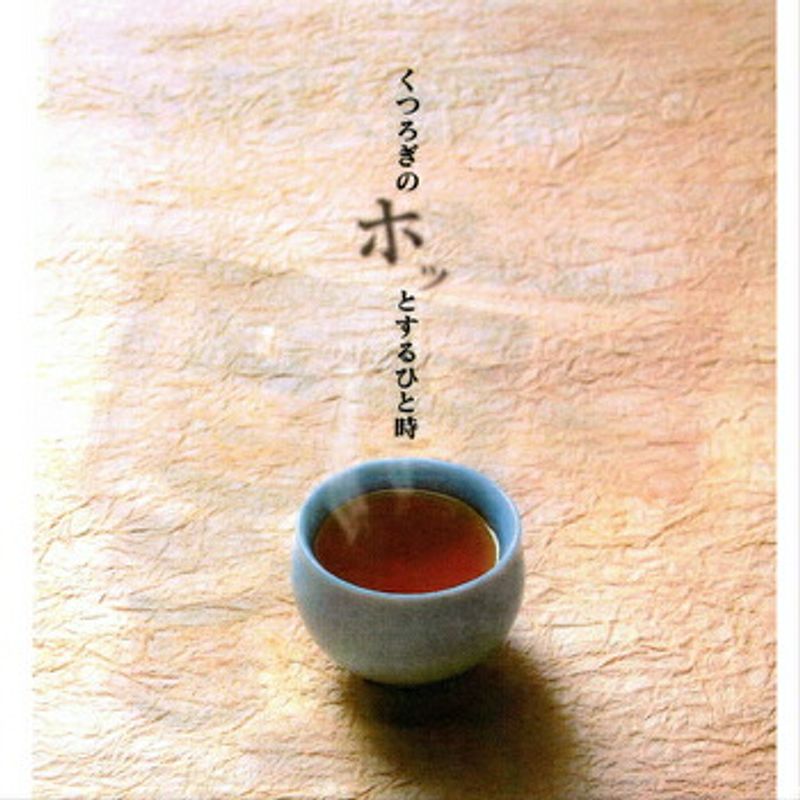 くつろぎの
ホッ
とするひと時